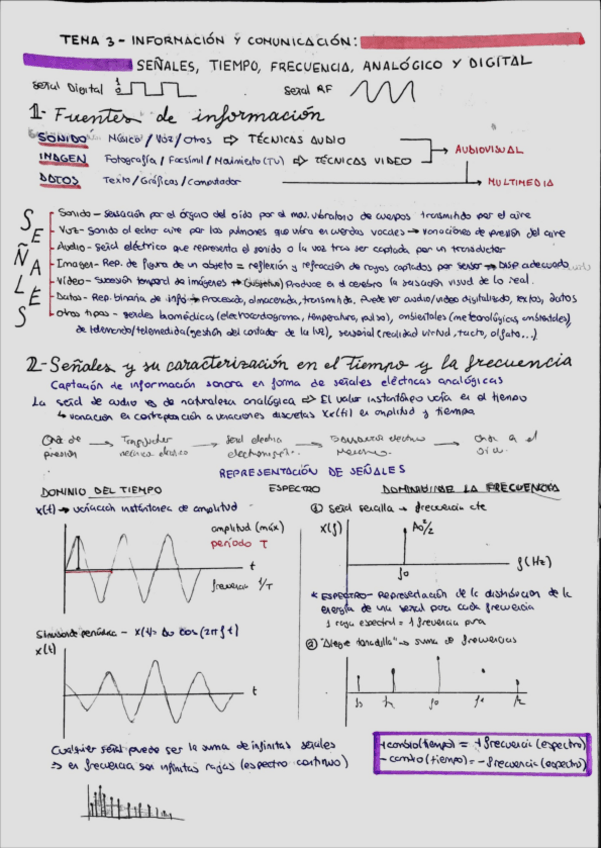 TEMA 3 - INFORMACIÓN Y COMUNICACIÓN:
SEÑALES, TIEMPO, FRECUENCIA, ANALÓGICO Y DIGITAL
Señal Digital 1 0 Señal RF
1- Fuentes de información
SONIDO Música / Voz / Otros ⇨ TÉCNICAS AUDIO
AUDIOVISUAL
IMAGEN Fotografía / Facsímil / Movimiento (TV) ⇨ TÉCNICAS VIDEO
DATOS Texto / Gráficas / Computador → MULTIMEDIA
SEÑALES
Sonido - Sensación por el órgano del oído por el mov. vibratorio de cuerpos transmitido por el aire
Voz - Sonido al echar aire por los pulmones que vibra en cuerdas vocales → variaciones de presión del aire
Audio - Señal eléctrica que representa el sonido o la voz tras ser captada por un transductor
Imagen - Rep. de figura de un objeto = reflexión y refracción de rayos captados por sensor → Disp adecuado
Vídeo - Sucesión temporal de imágenes → (subjetivo) Produce en el cerebro la sensación visual de lo real.
Datos - Rep. binaria de info → Procesada, almacenada, transmitida. Puede ser audio/video digitalizado, textos, datos
Otros tipos - señales biomédicas (electrocardiograma, temperatura, pulso), ambientales (meteorológicas, ambientales),
de telemando/telemedida (gestión del contador de la luz), sensorial (realidad virtual, tacto, olfato...)
2- Señales y su caracterización en el tiempo y la frecuencia
Captación de información sonora en forma de señales eléctricas analógicas
La señal de audio es de naturaleza analógica ⇨ El valor instantáneo varía en el tiempo
↳ variación en contraposición a variaciones discretas x(t) en amplitud y tiempo
Onda de presión → Transductor → Señal → →
REPRESENTACIÓN DE SEÑALES
DOMINIO DEL TIEMPO ESPECTRO DOMINIO DE LA FRECUENCIA
x(t) → variación instantánea de amplitud
① Señal sencilla → frecuencia cte
amplitud (máx)
período T
frecuencia 1/T
t
X(f) A0²/2
f0 f(Hz)
* ESPECTRO - Representación de la distribución de la
energía de una señal para cada frecuencia
1 raya espectral = 1 frecuencia pura
Sinusoide periódica - x(t) = A0 cos (2π f t)
x(t)
t
② "Alegre tonadilla" → suma de frecuencias
f0
Cualquier señal puede ser la suma de infinitas señales
⇒ en frecuencia son infinitas rayas (espectro continuo)
+ cambio (tiempo) = + frecuencia (espectro)
- cambio (tiempo) = - frecuencia (espectro)